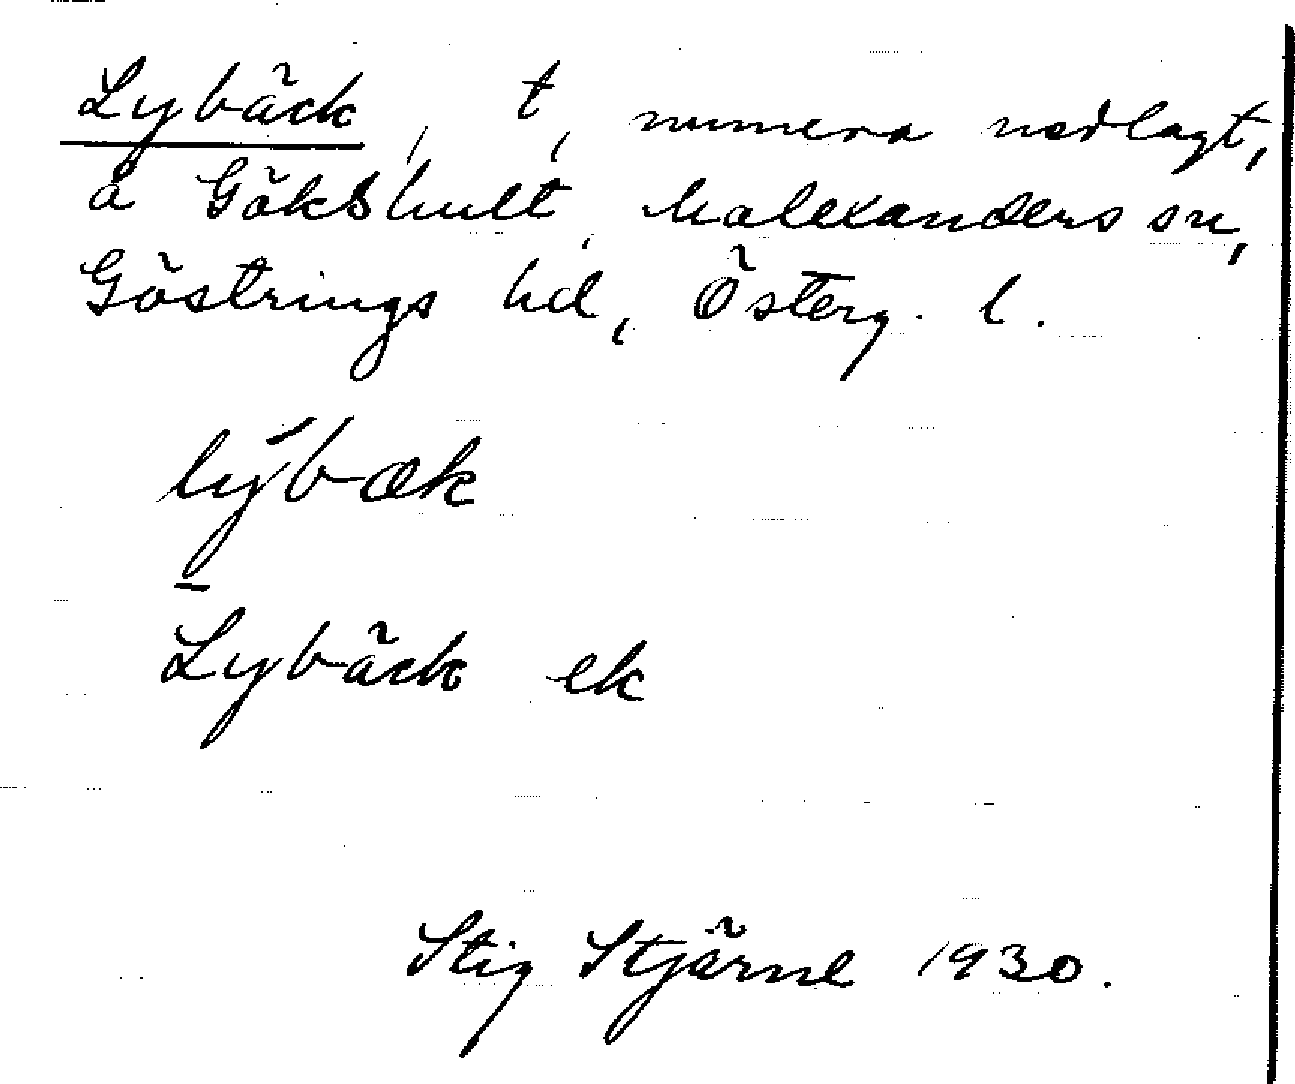 Lybäck, t, numera nedlagt,
å Gökshult, Malexanders sn,
Göstrings hd, Österg. l.
lýbæk
Lybäck ek
Stig Stjärne 1930.